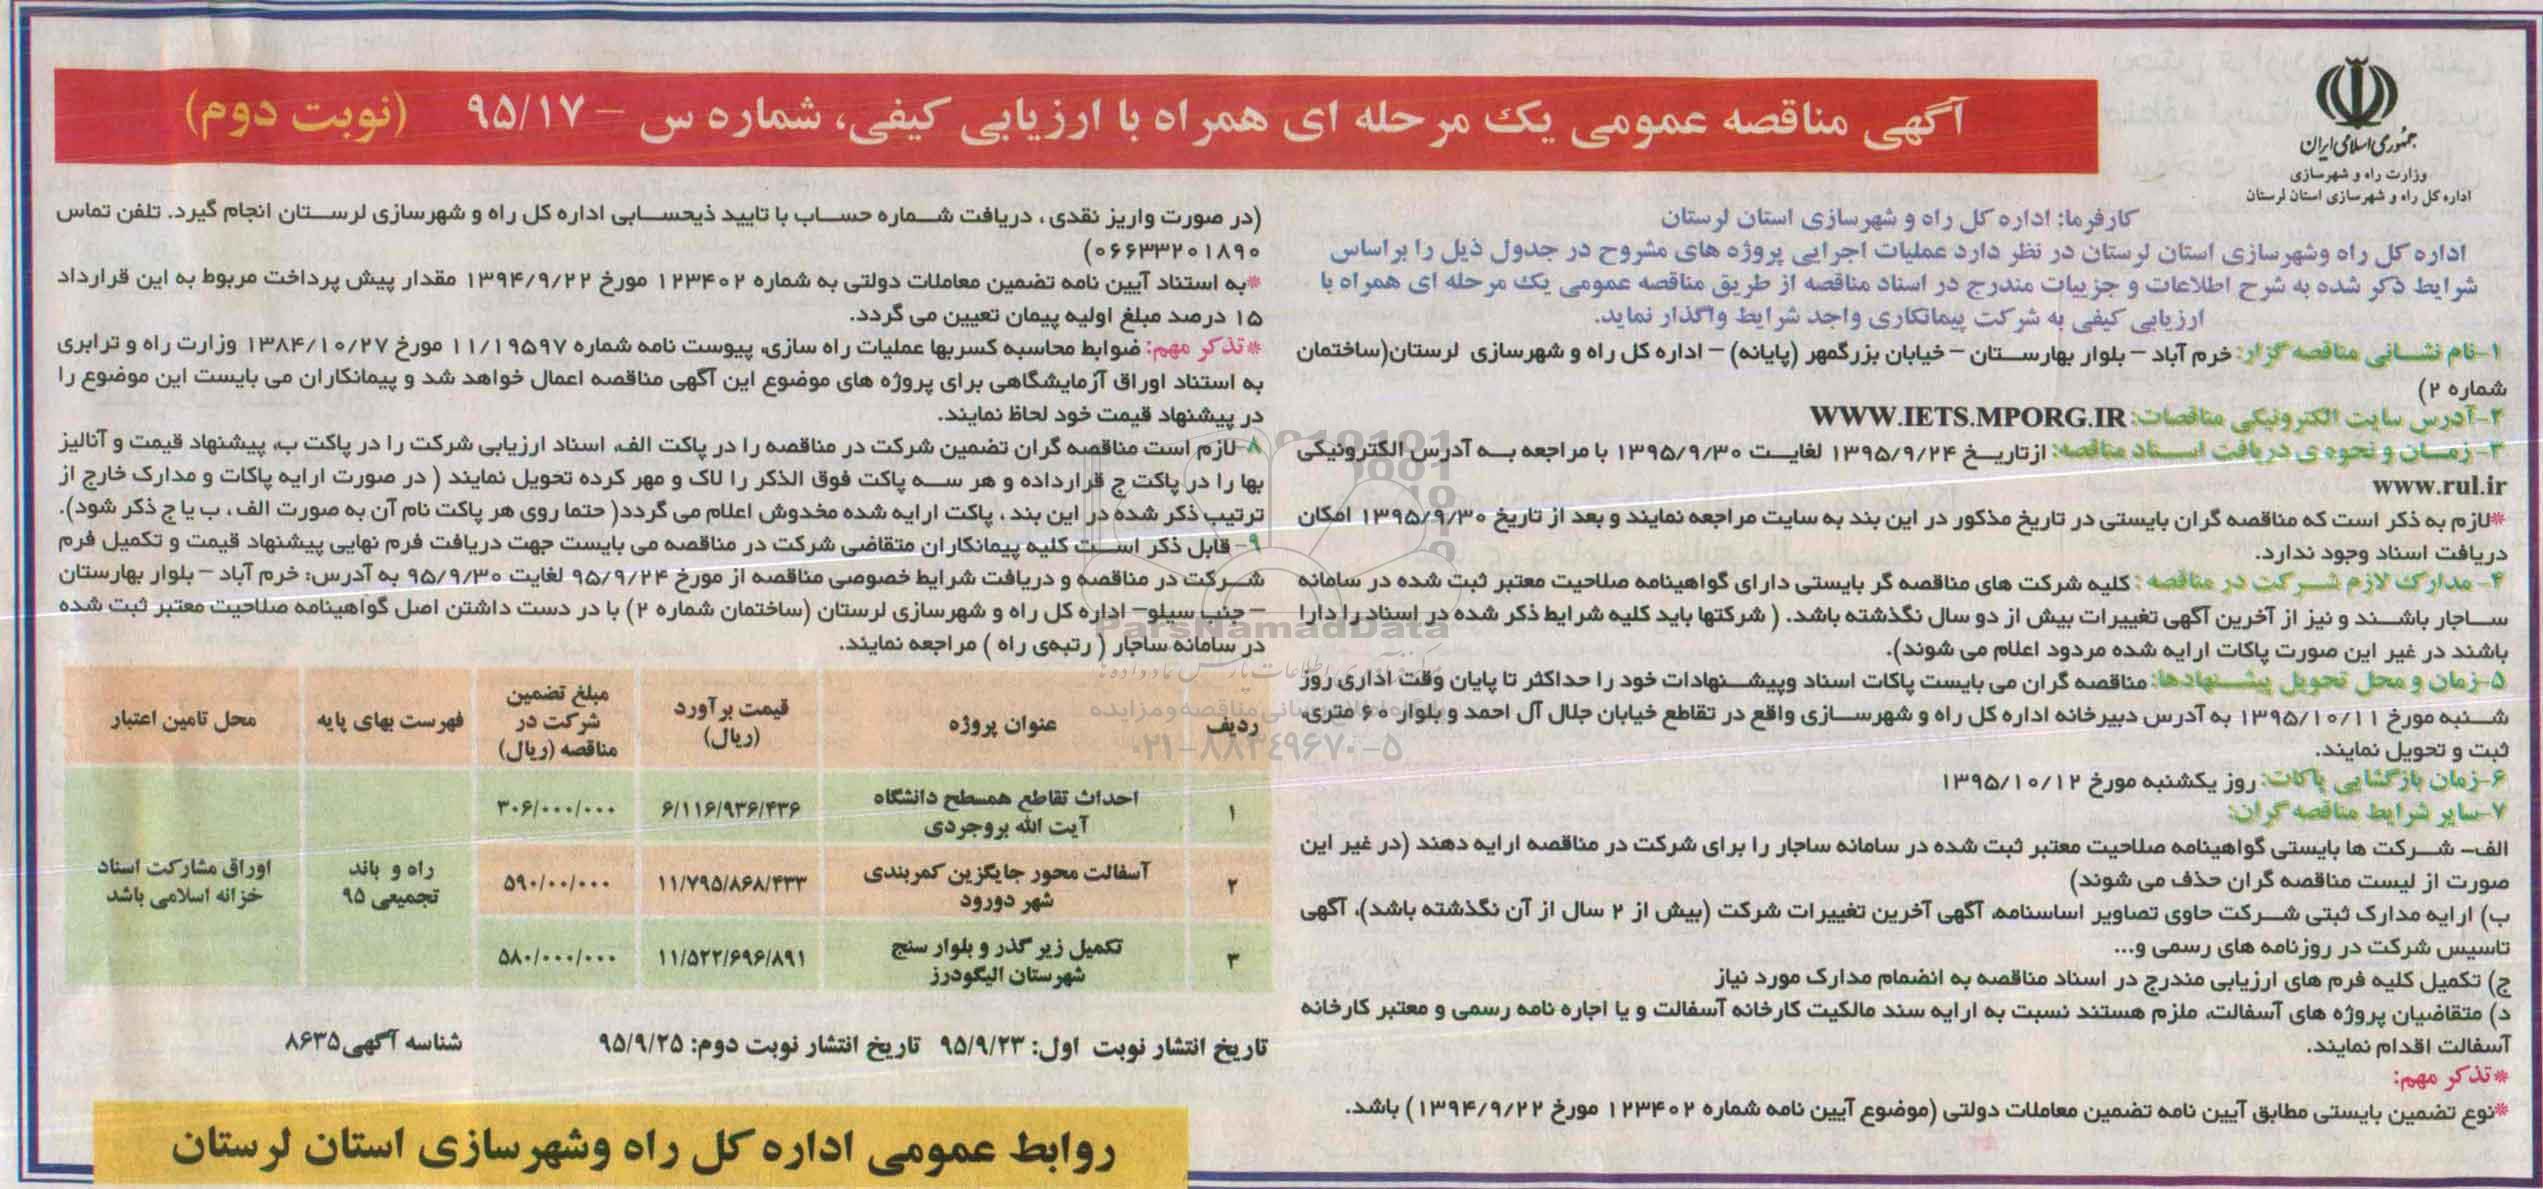 جمهوری اسلامی ایران
وزارت راه و شهرسازی
اداره کل راه و شهرسازی استان لرستان
آگهی مناقصه عمومی یک مرحله ای همراه با ارزیابی کیفی، شماره س – ۹۵/۱۷ (نوبت دوم)
کارفرما: اداره کل راه و شهرسازی استان لرستان
اداره کل راه وشهرسازی استان لرستان در نظر دارد عملیات اجرایی پروژه های مشروح در جدول ذیل را براساس
شرایط ذکر شده به شرح اطلاعات و جزییات مندرج در اسناد مناقصه از طریق مناقصه عمومی یک مرحله ای همراه با
ارزیابی کیفی به شرکت پیمانکاری واجد شرایط واگذار نماید.
۱-نام نشانی مناقصه گزار: خرم آباد – بلوار بهارستان – خیابان بزرگمهر (پایانه) – اداره کل راه و شهرسازی لرستان(ساختمان
شماره ۲)
۲-آدرس سایت الکترونیکی مناقصات: WWW.IETS.MPORG.IR
۳- زمان و نحوه ی دریافت اسناد مناقصه: ازتاریخ ۱۳۹۵/۹/۲۴ لغایت ۱۳۹۵/۹/۳۰ با مراجعه به آدرس الکترونیکی
www.rul.ir
*لازم به ذکر است که مناقصه گران بایستی در تاریخ مذکور در این بند به سایت مراجعه نمایند و بعد از تاریخ ۱۳۹۵/۹/۳۰ امکان
دریافت اسناد وجود ندارد.
۴- مدارک لازم شرکت در مناقصه : کلیه شرکت های مناقصه گر بایستی دارای گواهینامه صلاحیت معتبر ثبت شده در سامانه
ساجار باشند و نیز از آخرین آگهی تغییرات بیش از دو سال نگذشته باشد. ( شرکتها باید کلیه شرایط ذکر شده در اسناد را دارا
باشند در غیر این صورت پاکات ارایه شده مردود اعلام می شوند).
۵-زمان و محل تحویل پیشنهادها: مناقصه گران می بایست پاکات اسناد وپیشنهادات خود را حداکثر تا پایان وقت اداری روز
شنبه مورخ ۱۳۹۵/۱۰/۱۱ به آدرس دبیرخانه اداره کل راه و شهرسازی واقع در تقاطع خیابان جلال آل احمد و بلوار ۶۰ متری،
ثبت و تحویل نمایند.
۶-زمان بازگشایی پاکات: روز یکشنبه مورخ ۱۳۹۵/۱۰/۱۲
۷-سایر شرایط مناقصه گران:
الف- شرکت ها بایستی گواهینامه صلاحیت معتبر ثبت شده در سامانه ساجار را برای شرکت در مناقصه ارایه دهند (در غیر این
صورت از لیست مناقصه گران حذف می شوند)
ب) ارایه مدارک ثبتی شرکت حاوی تصاویر اساسنامه، آگهی آخرین تغییرات شرکت (بیش از ۲ سال از آن نگذشته باشد)، آگهی
تاسیس شرکت در روزنامه های رسمی و...
ج) تکمیل کلیه فرم های ارزیابی مندرج در اسناد مناقصه به انضمام مدارک مورد نیاز
د) متقاضیان پروژه های آسفالت، ملزم هستند نسبت به ارایه سند مالکیت کارخانه آسفالت و یا اجاره نامه رسمی و معتبر کارخانه
آسفالت اقدام نمایند.
*تذکر مهم:
*نوع تضمین بایستی مطابق آیین نامه تضمین معاملات دولتی (موضوع آیین نامه شماره ۱۲۳۴۰۲ مورخ ۱۳۹۴/۹/۲۲) باشد.
(در صورت واریز نقدی ، دریافت شماره حساب با تایید ذیحسابی اداره کل راه و شهرسازی لرستان انجام گیرد. تلفن تماس
۰۶۶۳۳۲۰۱۸۹۰)
*به استناد آیین نامه تضمین معاملات دولتی به شماره ۱۲۳۴۰۲ مورخ ۱۳۹۴/۹/۲۲ مقدار پیش پرداخت مربوط به این قرارداد
۱۵ درصد مبلغ اولیه پیمان تعیین می گردد.
*تذکر مهم: ضوابط محاسبه کسربها عملیات راه سازی، پیوست نامه شماره ۱۱/۱۹۵۹۷ مورخ ۱۳۸۴/۱۰/۲۷ وزارت راه و ترابری
به استناد اوراق آزمایشگاهی برای پروژه های موضوع این آگهی مناقصه اعمال خواهد شد و پیمانکاران می بایست این موضوع را
در پیشنهاد قیمت خود لحاظ نمایند.
۸-لازم است مناقصه گران تضمین شرکت در مناقصه را در پاکت الف، اسناد ارزیابی شرکت را در پاکت ب، پیشنهاد قیمت و آنالیز
بها را در پاکت ج قرارداده و هر سه پاکت فوق الذکر را لاک و مهر کرده تحویل نمایند ( در صورت ارایه پاکات و مدارک خارج از
ترتیب ذکر شده در این بند ، پاکت ارایه شده مخدوش اعلام می گردد( حتما روی هر پاکت نام آن به صورت الف ، ب یا ج ذکر شود).
۹- قابل ذکر است کلیه پیمانکاران متقاضی شرکت در مناقصه می بایست جهت دریافت فرم نهایی پیشنهاد قیمت و تکمیل فرم
شرکت در مناقصه و دریافت شرایط خصوصی مناقصه از مورخ ۹۵/۹/۲۴ لغایت ۹۵/۹/۳۰ به آدرس: خرم آباد – بلوار بهارستان
– جنب سیلو– اداره کل راه و شهرسازی لرستان (ساختمان شماره ۲) با در دست داشتن اصل گواهینامه صلاحیت معتبر ثبت شده
در سامانه ساجار ( رتبه‌ی راه ) مراجعه نمایند.
ردیف عنوان پروژه قیمت برآورد (ریال) مبلغ تضمین شرکت در مناقصه (ریال) فهرست بهای پایه محل تامین اعتبار
۱ احداث تقاطع همسطح دانشگاه آیت الله بروجردی ۶/۱۱۶/۹۳۶/۴۳۶ ۳۰۶/۰۰۰/۰۰۰
۲ آسفالت محور جایگزین کمربندی شهر دورود ۱۱/۷۹۵/۸۶۸/۴۳۳ ۵۹۰/۰۰/۰۰۰ راه و باند تجمیعی ۹۵ اوراق مشارکت اسناد خزانه اسلامی باشد
۳ تکمیل زیر گذر و بلوار سنج شهرستان الیگودرز ۱۱/۵۲۲/۶۹۶/۸۹۱ ۵۸۰/۰۰۰/۰۰۰
تاریخ انتشار نوبت اول: ۹۵/۹/۲۳ تاریخ انتشار نوبت دوم: ۹۵/۹/۲۵ شناسه آگهی۸۶۳۵
روابط عمومی اداره کل راه وشهرسازی استان لرستان
ParsNamadData
۰۲۱-۸۸۳۴۹۶۷۰-۵